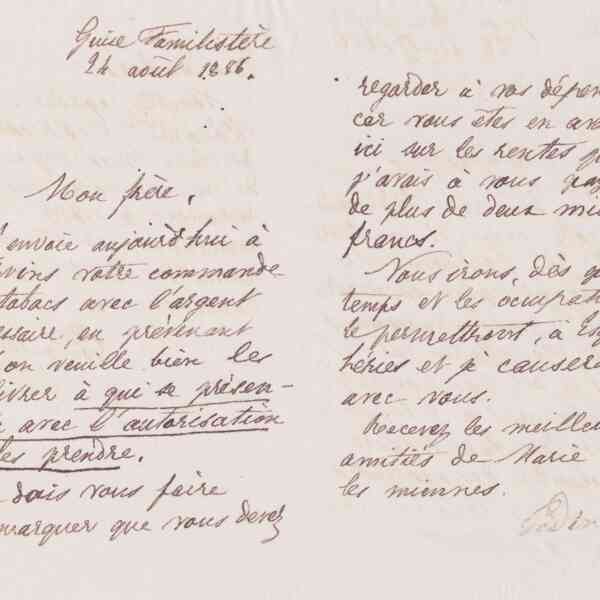 Guise Familistère
24 août 1886.
Mon frère,
envoie aujourd'hui à
votre commande
tabacs avec l'argent
en prévenant
on veuille bien les
livrer à qui se présen-
avec l'autorisation
les prendre.
dois vous faire
marquer que vous devez
regarder à vos dépen
car vous êtes en ava
ici sur les rentes q
j'avais à vous pay
de plus de deux mil
francs.
Nous irons, dès q
temps et les occupati
le permettront, à Esq
héries et je causera
avec vous.
Recevez les meilleu
amitiés de Marie
les miennes.
Godin